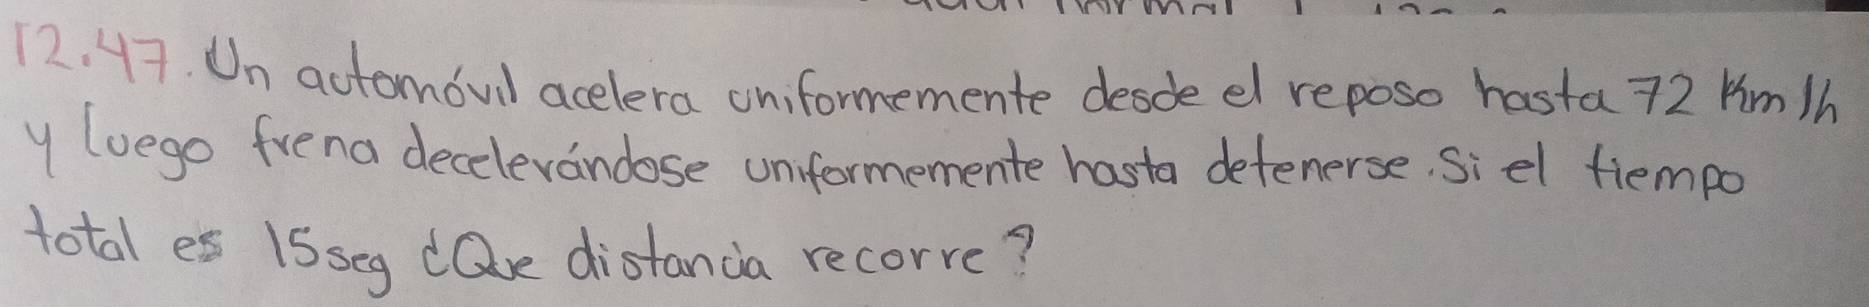 12.47. Un automóvil acelera uniformemente desde el reposo hasta 72 Km/h
y luego frena decelerándose uniformemente hasta detenerse. Si el tiempo
total es 15seg ¿Que distancia recorre?